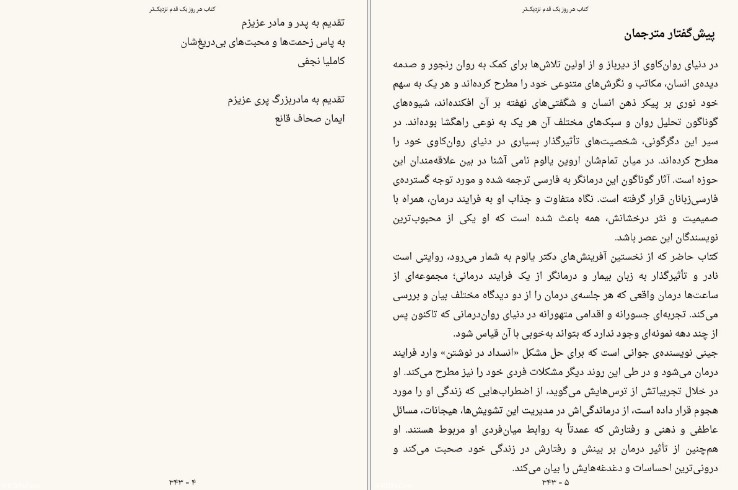 کتاب هر روز یک قدم نزدیک‌تر
پیش‌گفتار مترجمان
در دنیای روان‌کاوی از دیرباز و از اولین تلاش‌ها برای کمک به روان رنجور و صدمه
دیده‌ی انسان، مکاتب و نگرش‌های متنوعی خود را مطرح کرده‌اند و هر یک به سهم
خود نوری بر پیکر ذهن انسان و شگفتی‌های نهفته بر آن افکنده‌اند، شیوه‌های
گوناگون تحلیل روان و سبک‌های مختلف آن هر یک به نوعی راهگشا بوده‌اند. در
سیر این دگرگونی، شخصیت‌های تأثیرگذار بسیاری در دنیای روان‌کاوی خود را
مطرح کرده‌اند. در میان تمام‌شان اروین یالوم نامی آشنا در بین علاقه‌مندان این
حوزه است. آثار گوناگون این درمانگر به فارسی ترجمه شده و مورد توجه گسترده‌ی
فارسی‌زبانان قرار گرفته است. نگاه متفاوت و جذاب او به فرایند درمان، همراه با
صمیمیت و نثر درخشانش، همه باعث شده است که او یکی از محبوب‌ترین
نویسندگان این عصر باشد.
کتاب حاضر که از نخستین آفرینش‌های دکتر یالوم به شمار می‌رود، روایتی است
نادر و تأثیرگذار به زبان بیمار و درمانگر از یک فرایند درمانی؛ مجموعه‌ای از
ساعت‌ها درمان واقعی که هر جلسه‌ی درمان را از دو دیدگاه مختلف بیان و بررسی
می‌کند. تجربه‌ای جسورانه و اقدامی متهورانه در دنیای روان‌درمانی که تاکنون پس
از چند دهه نمونه‌ای وجود ندارد که بتواند به‌خوبی با آن قیاس شود.
جینی نویسنده‌ی جوانی است که برای حل مشکل «انسداد در نوشتن» وارد فرایند
درمان می‌شود و در طی این روند دیگر مشکلات فردی خود را نیز مطرح می‌کند. او
در خلال تجربیاتش از ترس‌هایش می‌گوید، از اضطراب‌هایی که زندگی او را مورد
هجوم قرار داده است، از درماندگی‌اش در مدیریت این تشویش‌ها، هیجانات، مسائل
عاطفی و ذهنی و رفتارش که عمدتاً به روابط میان‌فردی او مربوط هستند. او
هم‌چنین از تأثیر درمان بر بینش و رفتارش در زندگی خود صحبت می‌کند و
درونی‌ترین احساسات و دغدغه‌هایش را بیان می‌کند.
۵ - ۳۴۳
کتاب هر روز یک قدم نزدیک‌تر
تقدیم به پدر و مادر عزیزم
به پاس زحمت‌ها و محبت‌های بی‌دریغ‌شان
کاملیا نجفی
تقدیم به مادربزرگ پری عزیزم
ایمان صحاف قانع
۴ - ۳۴۳